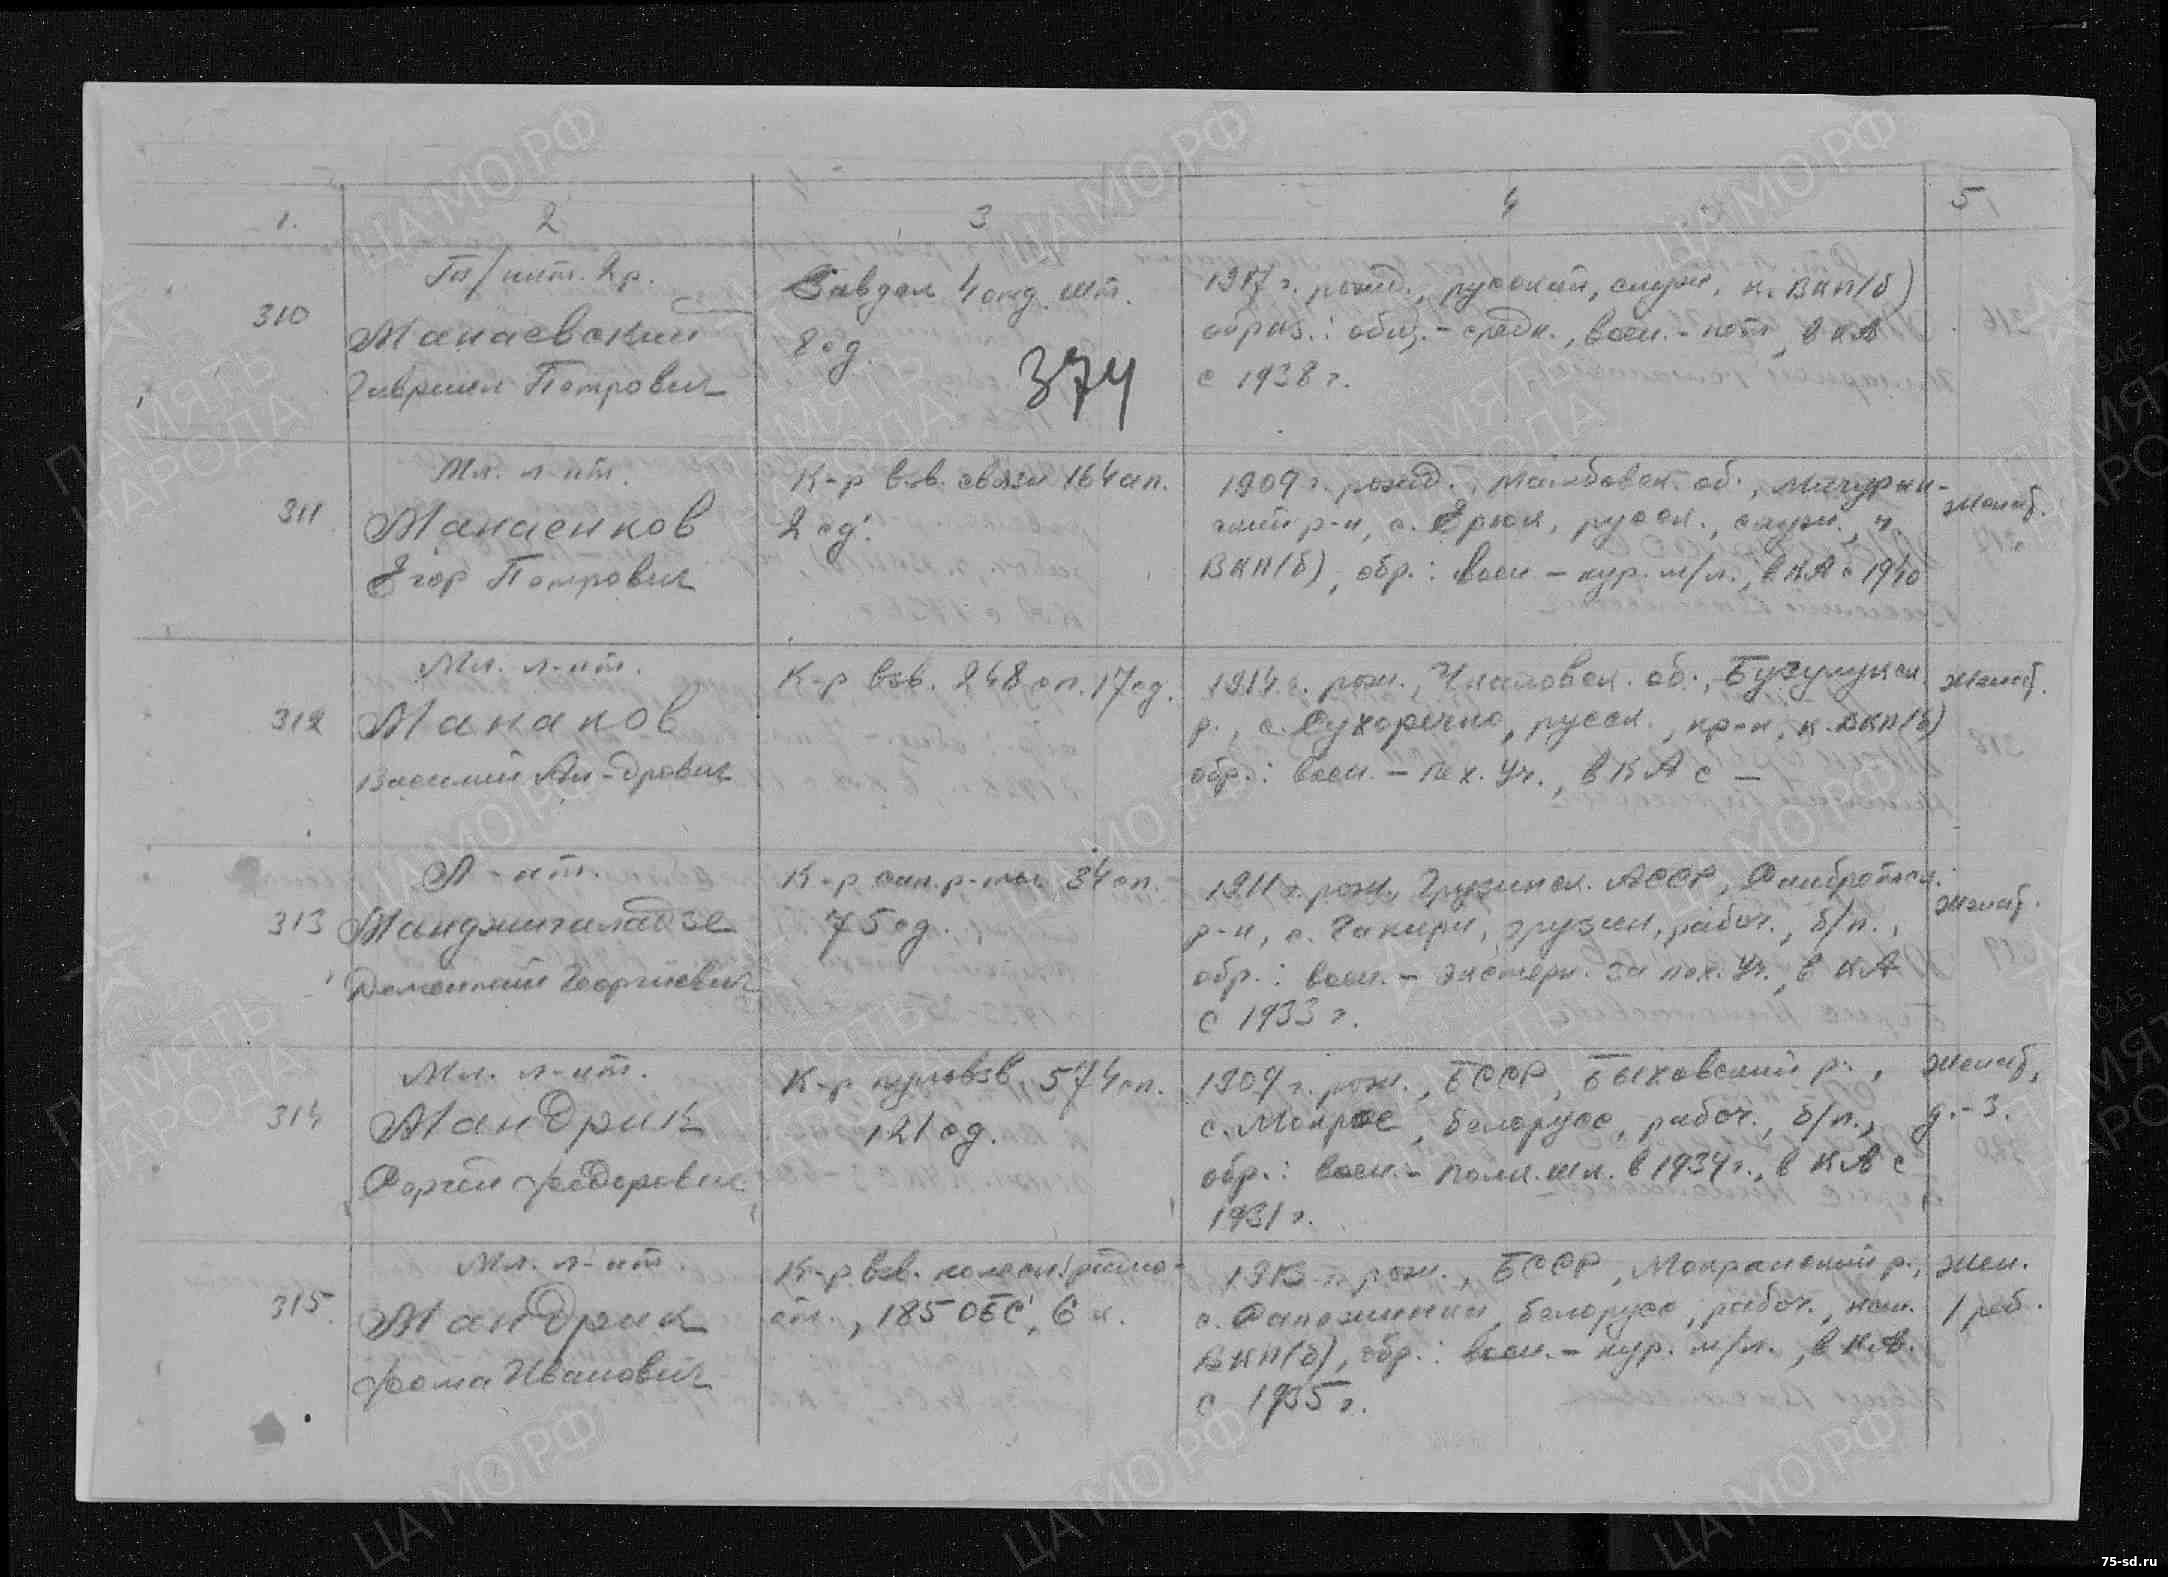 1. 2 3 4 5
310
Тп/инт. 2 р.
Манаевский
Гавриил Петрович
Завдел 4 отд. шт.
8 сд.
374
1917 г. рожд., русский, служ., к. ВКП(б)
образ.: общ. - средн., воен. - нет, в КА
с 1938 г.
311
Мл. л-нт.
Манаенков
Егор Петрович
К-р взв. связи 164 сп.
2 сд.
1909 г. рожд., Тамбовск. об., Мичурин-
ский р-н, с. русск., служ., ч.
ВКП(б), обр.: воен - кур. м/л., в КА с 1940
женат.
312
Мл. л-нт.
Манаков
Василий Ан-дрович
К-р взв. 248 сп. 17 сд.
1914 г. рож., Чкаловск. об., Бузулукск.
р., с. Сухоречка, русск., кр-н, к. ВКП(б)
обр.: воен. - пех. уч., в КА с —
женат.
313
Л-нт.
Манджигаладзе
Дементий Георгиевич
К-р сап. р-ты 34 сп.
75 сд.
1911 г. рож., Грузинск. АССР,
р-н, с. грузин, рабоч., б/п.,
обр.: воен. - экстерн. за пех. уч., в КА
с 1933 г.
женат.
314
Мл. л-нт.
Мандрик
Сергей Федорович
К-р пульвзв. 574 сп.
121 сд.
1907 г. рож., БССР, Быховский р.,
с. Мокрое, белорусс, рабоч., б/п.,
обр.: воен. - полк. шк. в 1934 г., в КА с
1931 г.
женат,
д. - 3.
315
Мл. л-нт.
Мандрик
Фома Иванович
К-р взв.
ст., 185 ОБС, 6 к.
1913 г. рож., БССР, Мокранский р.,
с. белорусс, рабоч., кан.
ВКП(б), обр.: воен. - кур. м/л., в КА.
с 1935 г.
жен.
1 реб.
ЦА МО РФ
ПАМЯТЬ
НАРОДА
75-sd.ru